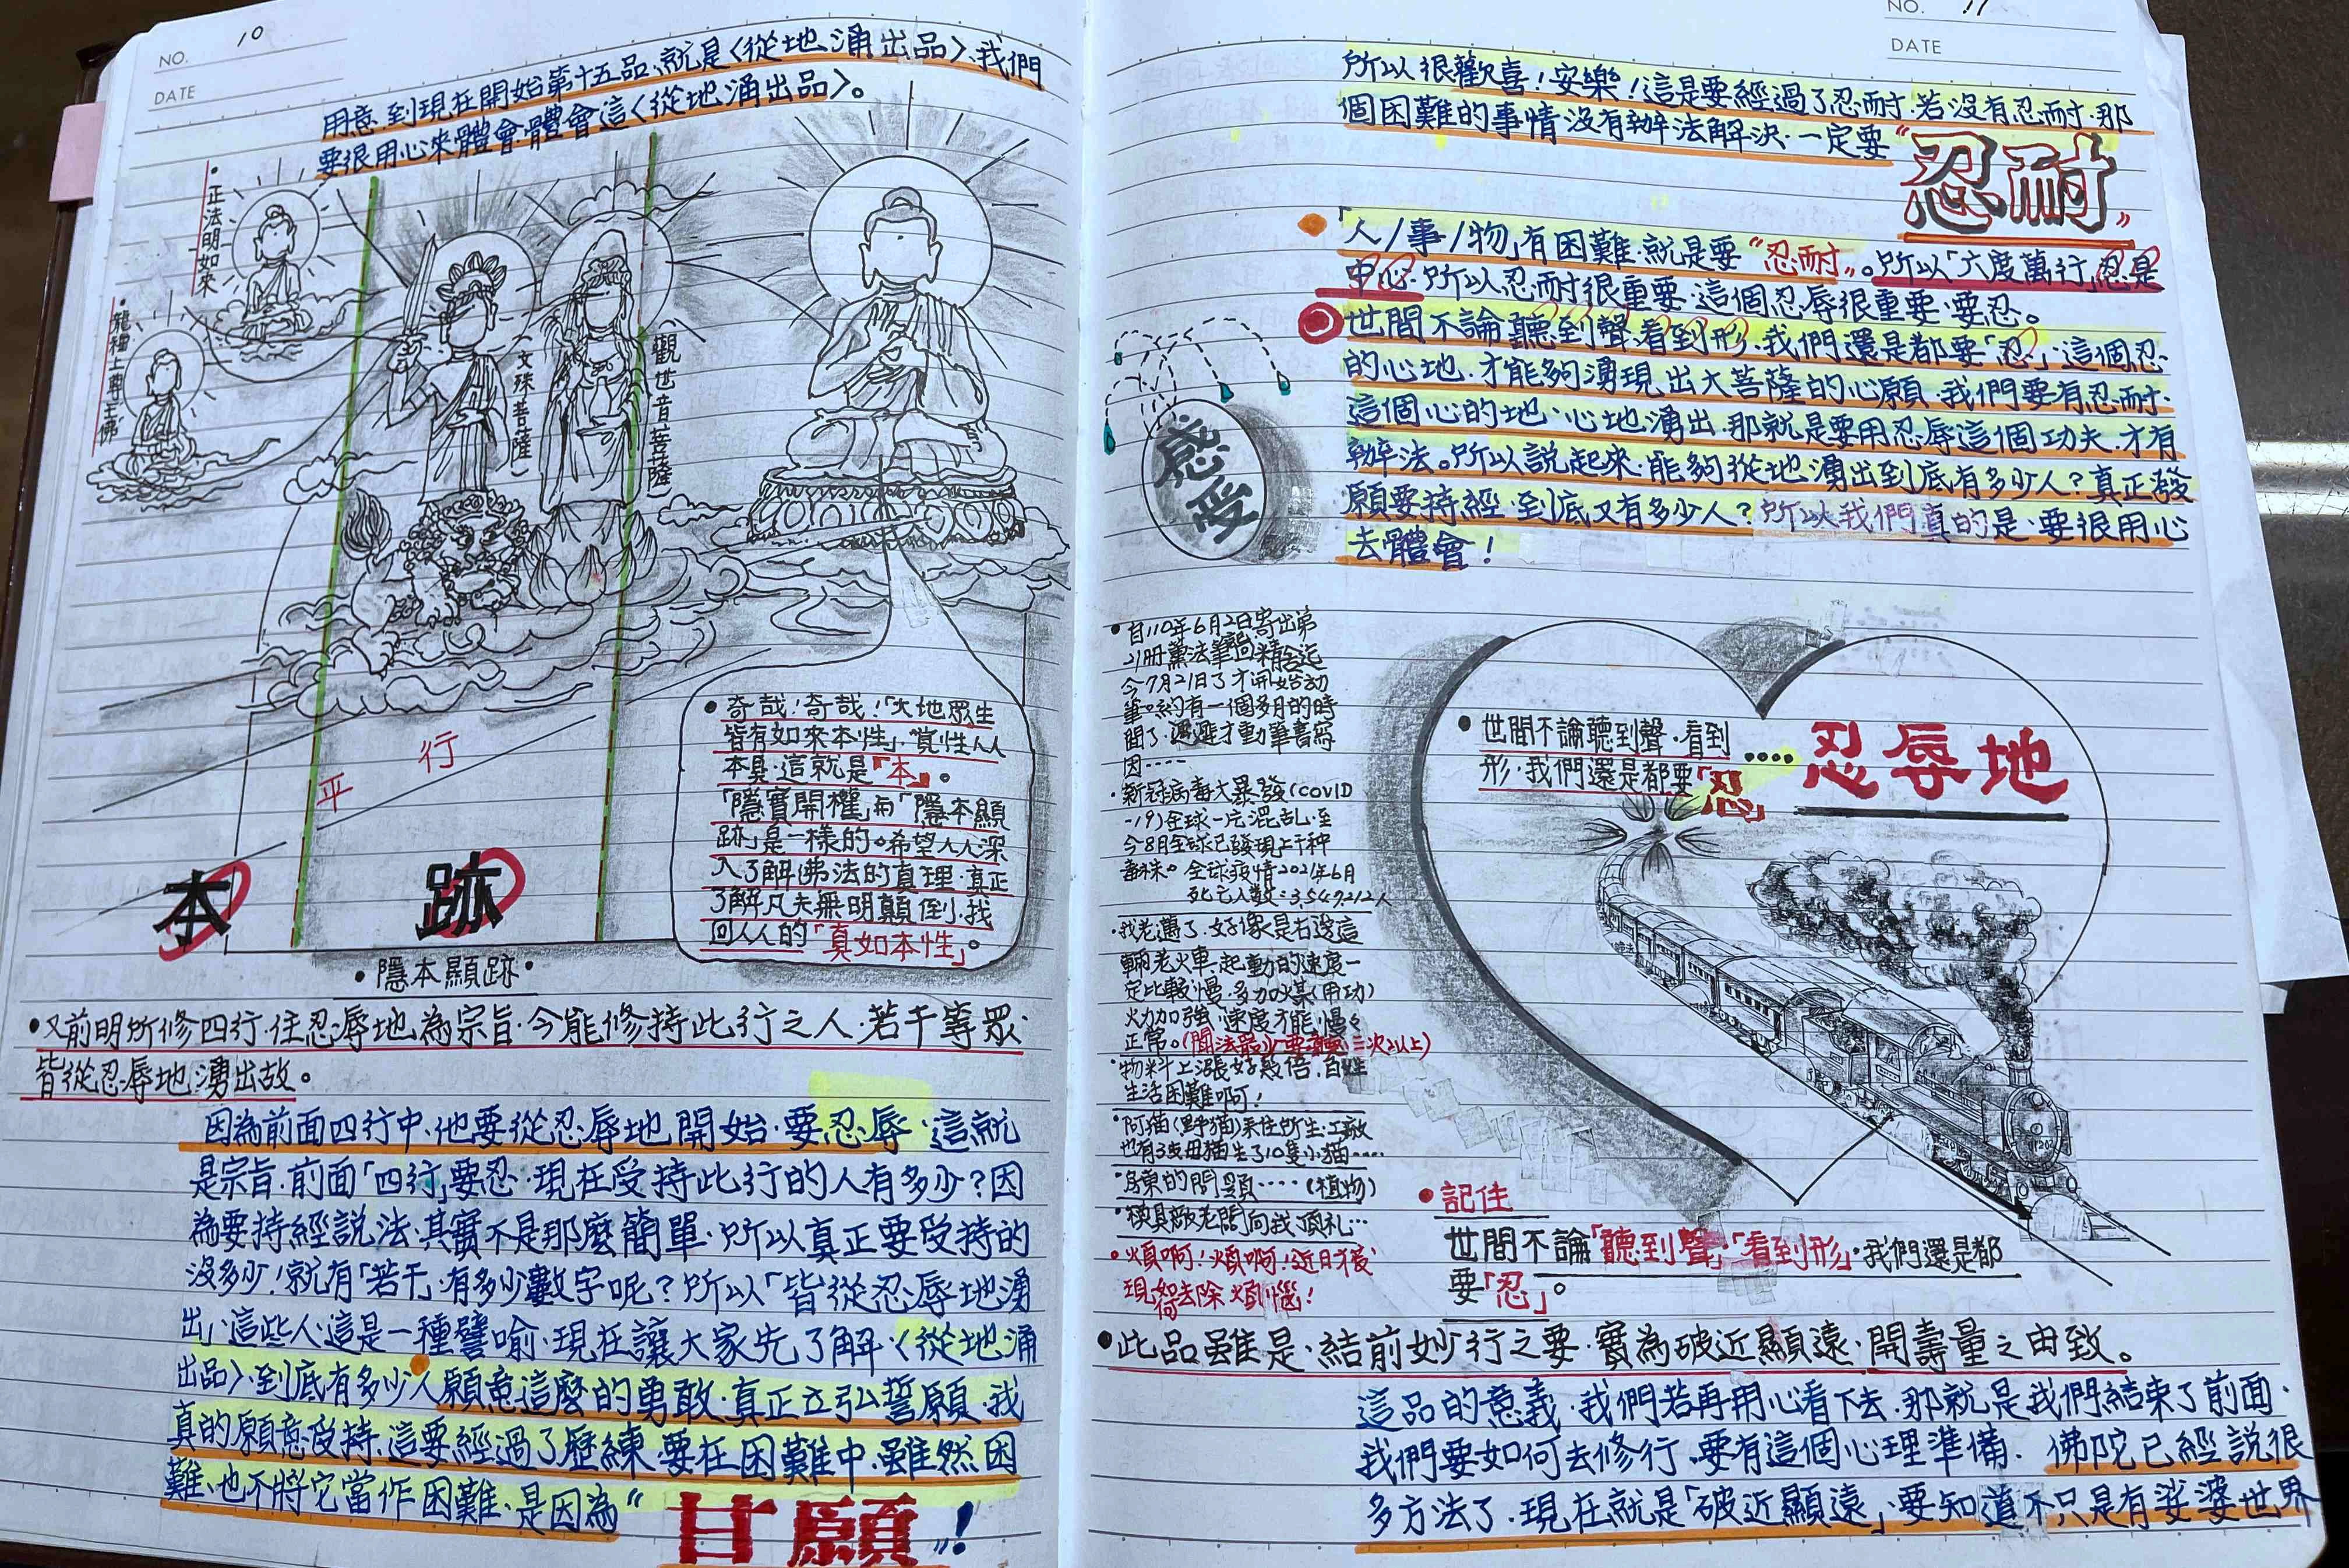 NO. 10
DATE
用意.到現在開始第十五品、就是〈從地涌出品〉、我們
要很用心來體會.體會這〈從地涌出品〉。
•正法明如來
•龍種上尊王佛
(文殊菩薩)
(觀世音菩薩)
平行
本
跡
•隱本顯跡•
•奇哉!奇哉!「大地眾生
皆有如來本性」.覺性人人
本具.這就是「本」。
「隱實開權」而「隱本顯
跡」是一樣的。希望人人深
入了解佛法的真理.真正
了解凡夫無明顛倒.找
回人人的「真如本性」。
•又前明所修四行.住忍辱地為宗旨.今能修持此行之人.若干等眾.
皆從忍辱地湧出故。
因為前面四行中.他要從忍辱地開始.要忍辱.這就
是宗旨.前面「四行」要忍.現在受持此行的人有多少?因
為要持經說法.其實不是那麼簡單.所以真正要受持的
沒多少!就有「若干」.有多少數字呢?所以「皆從忍辱地湧
出」這些人.這是一種譬喻.現在讓大家先了解〈從地涌
出品〉.到底有多少人願意這麼的勇敢.真正立弘誓願.我
真的願意受持.這要經過了歷練.要在困難中.雖然困
難、也不將它當作困難、是因為“甘願”!
NO. 11
DATE
所以很歡喜!安樂!這是要經過了忍耐.若沒有忍耐.那
個困難的事情沒有辦法解決.一定要“忍耐”
「人/事/物」有困難.就是要“忍耐”。所以「六度萬行」忍是
中心.所以忍耐很重要.這個忍辱很重要.要忍。
世間不論聽到聲.看到形.我們還是都要「忍」這個忍
的心地.才能夠湧現出大菩薩的心願.我們要有忍耐.
這個心的地、心地湧出.那就是要用忍辱這個功夫.才有
辦法。所以說起來.能夠從地湧出到底有多少人?真正發
願要持經.到底又有多少人?所以我們真的是.要很用心
去體會!
感受
•自110年6月2日寄出第
21冊薰法筆記回精舍迄
今7月21日了才開始動
筆。約有一個多月的時
間了.遲遲才動筆書寫
因····
•新冠病毒大暴發(COVID
-19)全球一片混乱.至
今8月全球已發現上千种
毒株。全球疫情2021年6月
死亡人數=3,549,212人
•我老邁了.好像是右邊這
輛老火車.起動的速度一
定比較慢.多加煤(用功)
火力加強.速度才能慢々
正常。(聞法最少要聽三次以上)
•物料上漲好幾倍.百姓
生活困難啊!
•阿貓(野貓)來住所生.工廠
也有3隻母貓生了10隻小貓····
•房東的問題····(植物)
•模具廠老闆向我頂礼…
•煩啊!煩啊!近日才發
現如何去除煩惱!
•世間不論聽到聲.看到
形.我們還是都要「忍」
····忍辱地
•記住
世間不論「聽到聲」「看到形」.我們還是都
要「忍」。
•此品雖是、結前妙行之要.實為破近顯遠.開壽量之由致。
這品的意義.我們若再用心看下去.那就是我們結束了前面.
我們要如何去修行.要有這個心理準備.佛陀已經說很
多方法了.現在就是「破近顯遠」.要知道不只是有娑婆世界